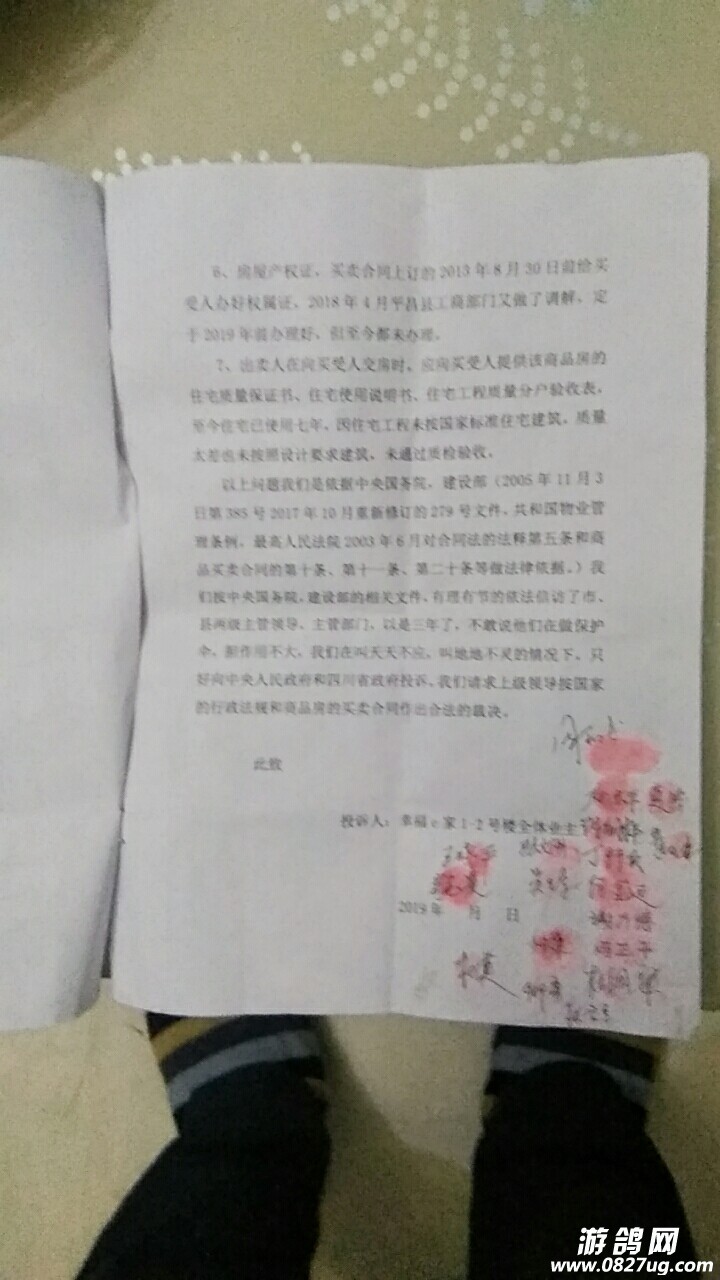 6、房屋产权证，买卖合同上订的2013年8月30日前给买
受人办好权属证，2018年4月平昌县工商部门又做了调解，定
于2019年前办理好，但至今都未办理。
7、出卖人在向买受人交房时，应向买受人提供该商品房的
住宅质量保证书、住宅使用说明书、住宅工程质量分户验收表，
至今住宅已使用七年，因住宅工程未按国家标准住宅建筑，质量
太差也未按照设计要求建筑，未通过质检验收。
以上问题我们是依据中央国务院，建设部（2005年11月3
日第385号2017年10月重新修订的279号文件，共和国物业管
理条例，最高人民法院2003年6月对合同法的法释第五条和商
品买卖合同的第十条、第十一条、第二十条等做法律依据。）我
们按中央国务院，建设部的相关文件，有理有节的依法信访了市、
县两级主管领导，主管部门，以是三年了，不敢说他们在做保护
伞，但作用不大，我们在叫天天不应，叫地地不灵的情况下，只
好向中央人民政府和四川省政府投诉，我们请求上级领导按国家
的行政法规和商品房的买卖合同作出合法的裁决。
此致
投诉人：幸福e家1-2号楼全体业主
2019年 月 日
游鸽网
www.0827ug.com